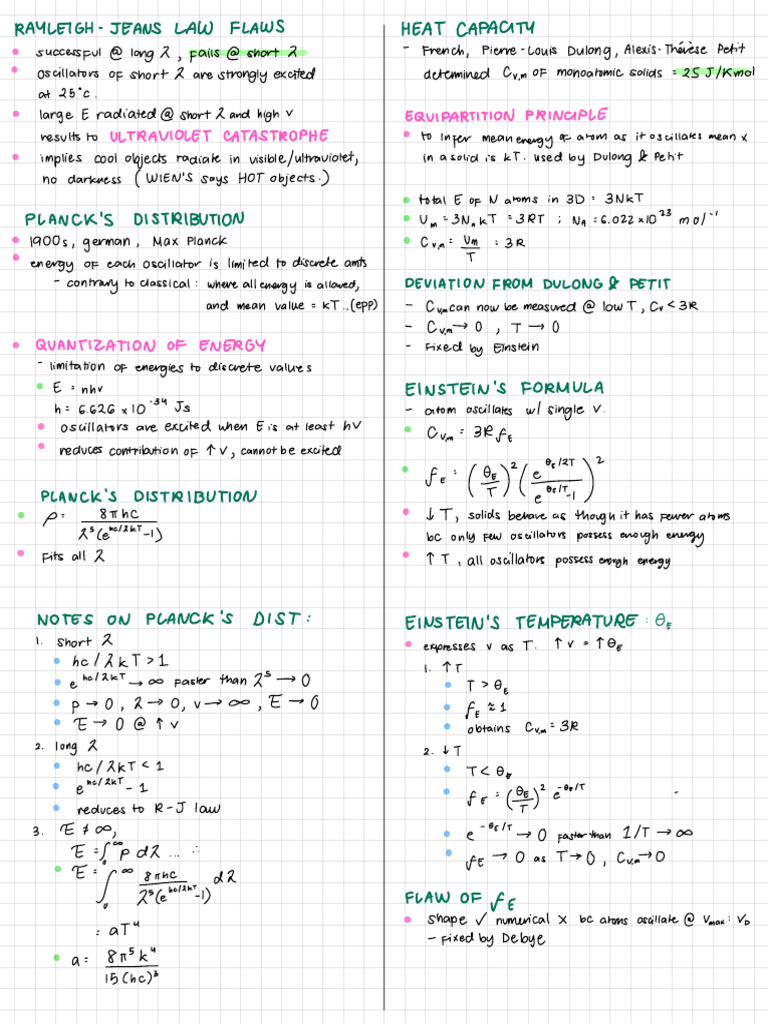 RAYLEIGH-JEANS LAW FLAWS
• successful @ long λ, fails @ short λ
• oscillators of short λ are strongly excited
at 25°c.
• large E radiated @ short λ and high v
results to ULTRAVIOLET CATASTROPHE
• implies cool objects radiate in visible/ultraviolet,
no darkness (WIEN'S says HOT objects.)
PLANCK'S DISTRIBUTION
• 1900s, german, Max Planck
• energy of each oscillator is limited to discrete amts
- contrary to classical: where all energy is allowed,
and mean value = kT..(epp)
• QUANTIZATION OF ENERGY
- limitation of energies to discrete values
• E = nhv
h = 6.626 x 10^-34 Js
• oscillators are excited when E is at least hv
• reduces contribution of ↑v, cannot be excited
PLANCK'S DISTRIBUTION
• ρ = 8πhc / λ^5(e^hc/λkT -1)
• Fits all λ
NOTES ON PLANCK'S DIST:
1. short λ
• hc/λkT > 1
• e^hc/λkT → ∞ faster than λ^5 → 0
• ρ → 0, λ → 0, v → ∞, E → 0
• E → 0 @ ↑v
2. long λ
• hc/λkT < 1
• e^hc/λkT - 1
• reduces to R-J law
3. E ≠ ∞,
E = ∫0^∞ ρ dλ ... ∴
• E = ∫0^∞ 8πhc / λ^5(e^hc/λkT -1) dλ
= aT^4
• a = 8π^5 k^4 / 15(hc)^3
HEAT CAPACITY
- French, Pierre-Louis Dulong, Alexis-Thérèse Petit
determined Cv,m of monoatomic solids = 25 J/Kmol
EQUIPARTITION PRINCIPLE
• to infer mean energy of atom as it oscillates mean x
in a solid is kT. used by Dulong & Petit
• total E of N atoms in 3D = 3NkT
• Um = 3NAkT = 3RT ; NA = 6.022 x 10^23 mol^-1
• Cv,m = Um / T = 3R
DEVIATION FROM DULONG & PETIT
- Cv,m can now be measured @ low T, Cv < 3R
- Cv,m → 0, T → 0
- Fixed by Einstein
EINSTEIN'S FORMULA
- atom oscillates w/ single v.
• Cv,m = 3R fE
• fE = (θE / T)^2 (e^θE/2T / e^θE/T -1)^2
• ↓T, solids behave as though it has fewer atoms
bc only few oscillators possess enough energy
• ↑T, all oscillators possess enough energy
EINSTEIN'S TEMPERATURE: θE
• expresses v as T. ↑v = ↑θE
1. ↑T
• T > θE
• fE ≈ 1
• obtains Cv,m = 3R
2. ↓T
• T < θE
• fE = (θE / T)^2 e^-θE/T
• e^-θE/T → 0 faster than 1/T → ∞
• fE → 0 as T → 0, Cv,m → 0
FLAW OF fE
• shape ✓ numerical X bc atoms oscillate @ Vmax = VD
- Fixed by Debye